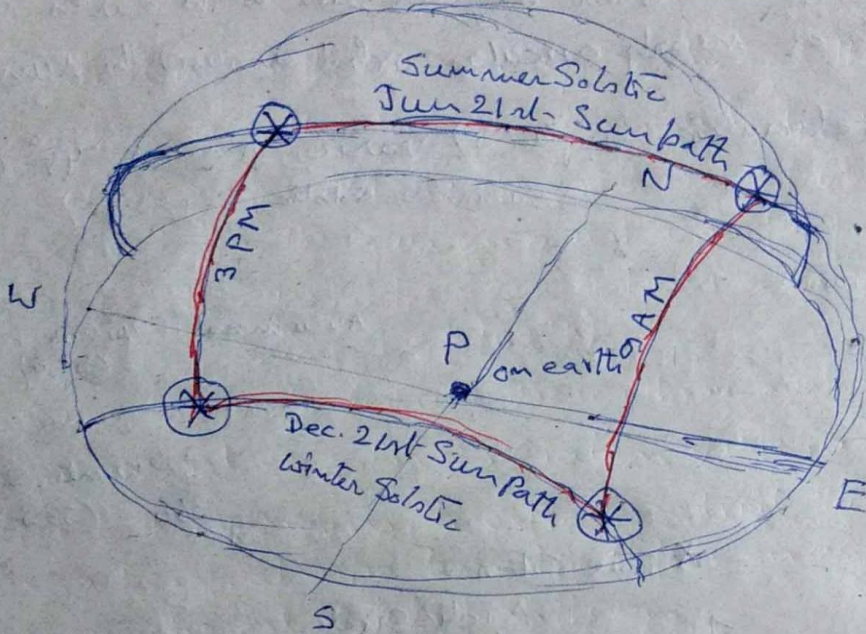 Summer Solstic
Jun 21st - Sun path
N
3 PM
9 AM
W
P
on earth
Dec. 21st Sun Path
winter Solstic
E
S